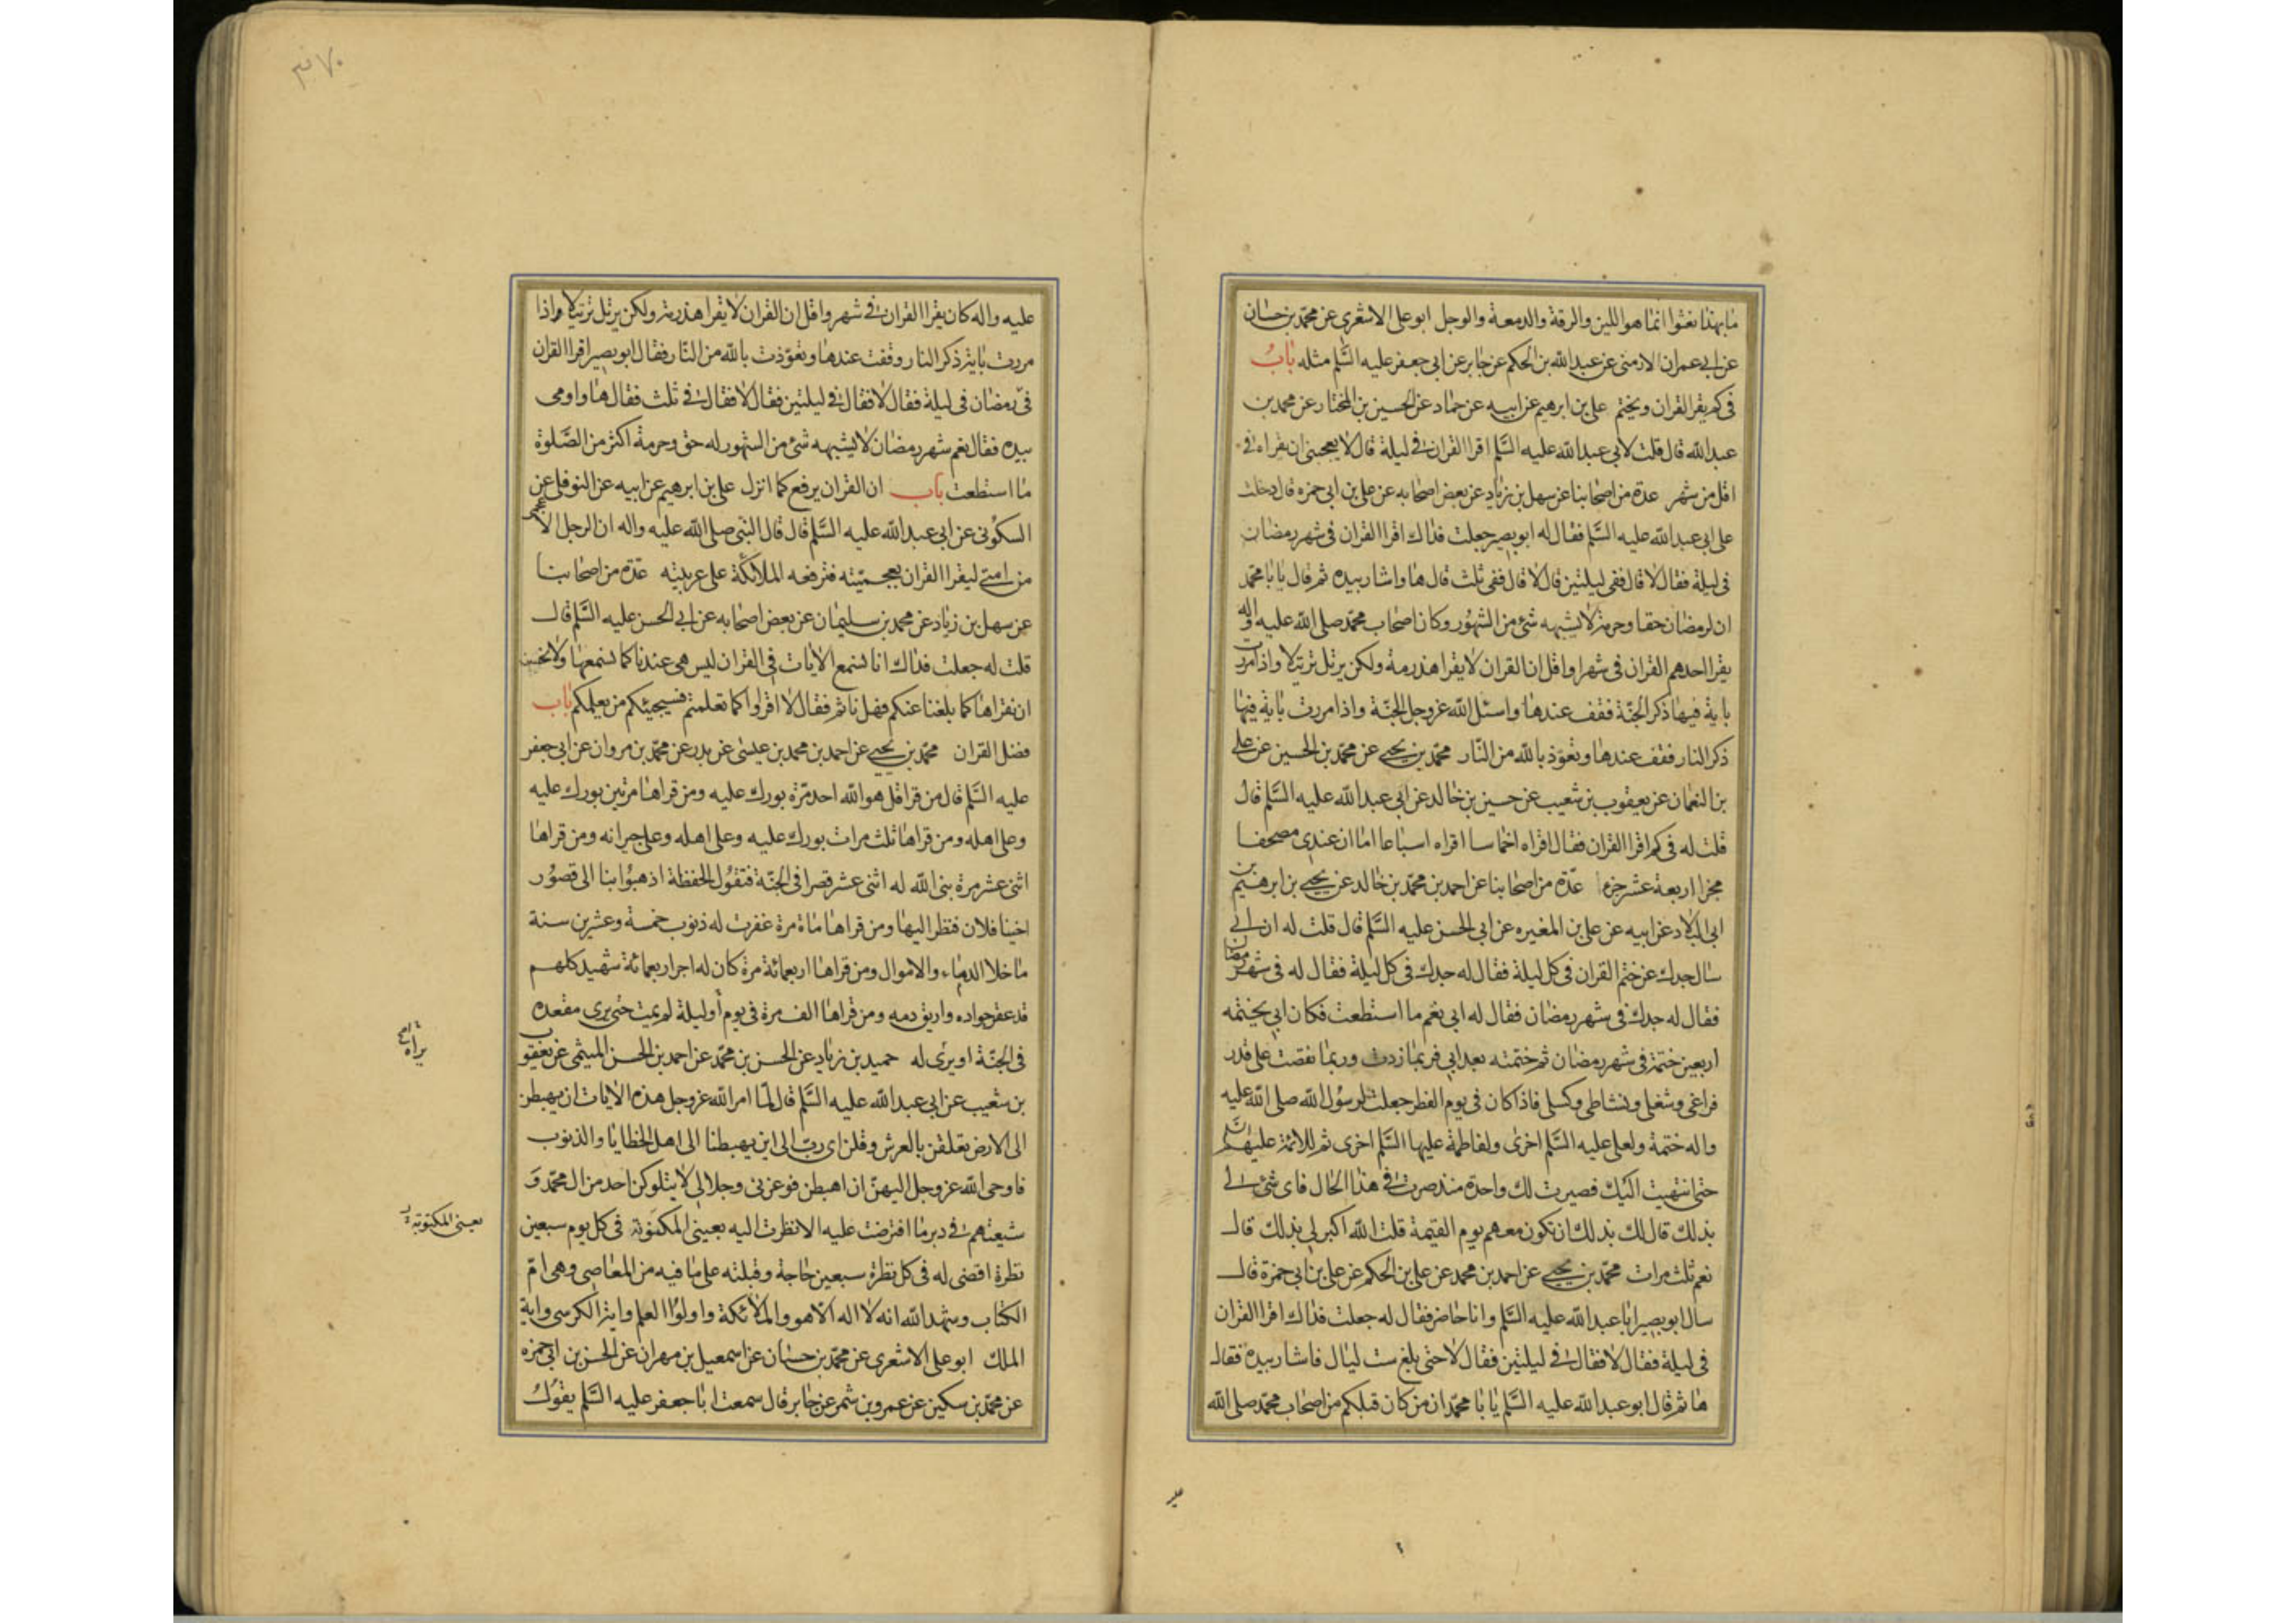 ما بهذا نعتوا انما هو اللين والرقة والدمعة والوجل ابو على الاشعري عن محمد بن حسان
عن ابي عمران الارمنى عن عبد الله بن الحكم عن جابر عن ابي جعفر عليه السَّلم مثله بابُ
فى كم يقرا القران ويختم على بن ابرهيم عن ابيه عن حماد عن الحسين بن المختار عن محمد بن
عبد الله قال قلت لابي عبد الله عليه السَّلم اقرا القران فى ليلة قال لا يعجبنى ان تقراه فى
اقل من شهر عدة من اصحابنا عن سهل بن زياد عن بعض اصحابه عن على بن ابى حمزه قال دخلت
على ابى عبد الله عليه السَّلم فقال له ابو بصير جعلت فداك اقرا القران فى شهر رمضان
فى ليلة فقال لا قال ففى ليلتين قال لا قال ففى ثلث قال ها واشار بيده ثم قال يا با محمد
ان لرمضان حقا وحرمة لا يشبهه شئ من الشهُور وكان اصحاب محمد صلى الله عليه واله
يقرا احدهم القران فى شهر او اقل ان القران لا يقرا هذرمة ولكن يرتل ترتيلا واذا مررت
باية فيها ذكر الجنّة فقف عندها واسئل الله عز وجل الجنّة واذا مررت باية فيها
ذكر النار فقف عندها وتعوّذ بالله من النّار محمّد بن يحيى عن محمّد بن الحسين عن على
بن النعمان عن يعقوب بن شعيب عن حسين بن خالد عن ابى عبد الله عليه السَّلم قال
قلت له فى كم اقرا القران فقال اقراه اخماسا اقراه اسباعا اما ان عندى مصحفا
مجزا اربعة عشر جزءا عدّة من اصحابنا عن احمد بن محمّد بن خالد عن يحيى بن ابرهيم بن
ابى البلاد عن ابيه عن على بن المغيره عن ابى الحسن عليه السَّلم قال قلت له ان ابى
سال جدك عن ختم القران فى كل ليلة فقال له جدك فى كل ليلة فقال له فى شهر رمضان
فقال له جدك فى شهر رمضان فقال له ابى نعم ما استطعت فكان ابى يختمه
اربعين ختمة فى شهر رمضان ثم ختمته بعد ابى فربما زدت وربما نقصت على قدر
فراغى وشغلى ونشاطى وكسلى فاذا كان فى يوم الفطر جعلت لرسُول الله صلى الله عليه
واله ختمة ولعلى عليه السَّلم اخرى ولفاطمة عليها السَّلم اخرى ثم للائمة عليهم السَّلم
حتى انتهيت اليك فصيرت لك واحدة منذ صرت فى هذا الحال فاى شئ لى
بذلك قال لك بذلك ان تكون معهم يوم القيمة قلت الله اكبر لى بذلك قال
نعم ثلث مرات محمّد بن يحيى عن احمد بن محمد عن على بن الحكم عن على بن ابى حمزة قال
سال ابو بصير ابا عبد الله عليه السَّلم وانا حاضر فقال له جعلت فداك اقرا القران
فى ليلة فقال لا فقال فى ليلتين فقال لا حتى بلغ ست ليال فاشار بيده فقال
ها ثم قال ابو عبد الله عليه السَّلم يا با محمّد ان من كان قبلكم من اصحاب محمّد صلى الله
٣٧٠
عليه واله كان يقرا القران فى شهر واقل ان القران لا يقرا هذرمة ولكن يرتل ترتيلا واذا
مررت باية ذكر النار وقفت عندها وتعوّذت بالله من النّار فقال ابو بصير اقرا القران
فى رمضان فى ليلة فقال لا فقال فى ليلتين فقال لا فقال فى ثلث فقال ها واومى
بيده فقال نعم شهر رمضان لا يشبهه شئ من الشهور له حق وحرمة اكثر من الصَّلوة
ما استطعت باب ان القران يرفع كما انزل على بن ابرهيم عن ابيه عن النوفلى عن
السكُونى عن ابى عبد الله عليه السَّلم قال قال النّبى صلى الله عليه واله ان الرجل الاعجمى
من امتى ليقرا القران بعجميّته فترفعه الملائكة على عربيته عدّة من اصحابنا
عن سهل بن زياد عن محمد بن سليمان عن بعض اصحابه عن ابى الحسن عليه السَّلم قال
قلت له جعلت فداك انا نسمع الايات فى القران ليس هى عندنا كما نسمعها ولا نحسن
ان نقراها كما بلغنا عنكم فهل ناثم فقال لا اقراوا كما تعلمتم فسيجيئكم من يعلمكم باب
فضل القران محمّد بن يحيى عن احمد بن محمد بن عيسى عن بدر عن محمّد بن مروان عن ابى جعفر
عليه السَّلم قال من قرا قل هو الله احد مرّة بورك عليه ومن قراها مرتين بورك عليه
وعلى اهله ومن قراها ثلث مرات بورك عليه وعلى اهله وعلى جيرانه ومن قراها
اثنى عشر مرة بنى الله له اثنى عشر قصرا فى الجنّة فتقُول الحفظة اذهبُوا بنا الى قصُور
اخينا فلان فننظر اليها ومن قراها ماة مرة غفرت له ذنوب خمسة وعشرين سنة
ما خلا الدماء والاموال ومن قراها اربعمائة مرة كان له اجر اربعمائة شهيد كلهم
قد عقر جواده واريق دمه ومن قراها الف مرة فى يوم او ليلة لم يمت حتى يرى مقعده
فى الجنّة او يرى له حميد بن زياد عن الحسن بن محمّد عن احمد بن الحسن الميثمى عن يعقوب
بن شعيب عن ابى عبد الله عليه السَّلم قال لمّا امر الله عز وجل هذه الايات ان يهبطن
الى الارض تعلقن بالعرش وقلن اى ربّ الى اين يهبطنا الى اهل الخطايا والذنوب
فاوحى الله عز وجل اليهنّ ان اهبطن فوعزتى وجلالى لا يتلوكن احد من ال محمّد وَ
شيعتهم فى دبر ما افترضت عليه الا نظرت اليه بعينى المكنونة فى كل يوم سبعين
نظرة اقضى له فى كل نظرة سبعين حاجة وقبلته على ما فيه من المعاصى وهى امّ
الكتاب وشهد الله انه لا اله الا هو والملائكة واولوا العلم واية الكرسى واية
الملك ابو على الاشعرى عن محمّد بن حسان عن اسمعيل بن مهران عن الحسن بن ابى حمزه
عن محمّد بن سكين عن عمرو بن شمر عن جابر قال سمعت ابا جعفر عليه السَّلم يقوُلُ
بعينى المكتوبة